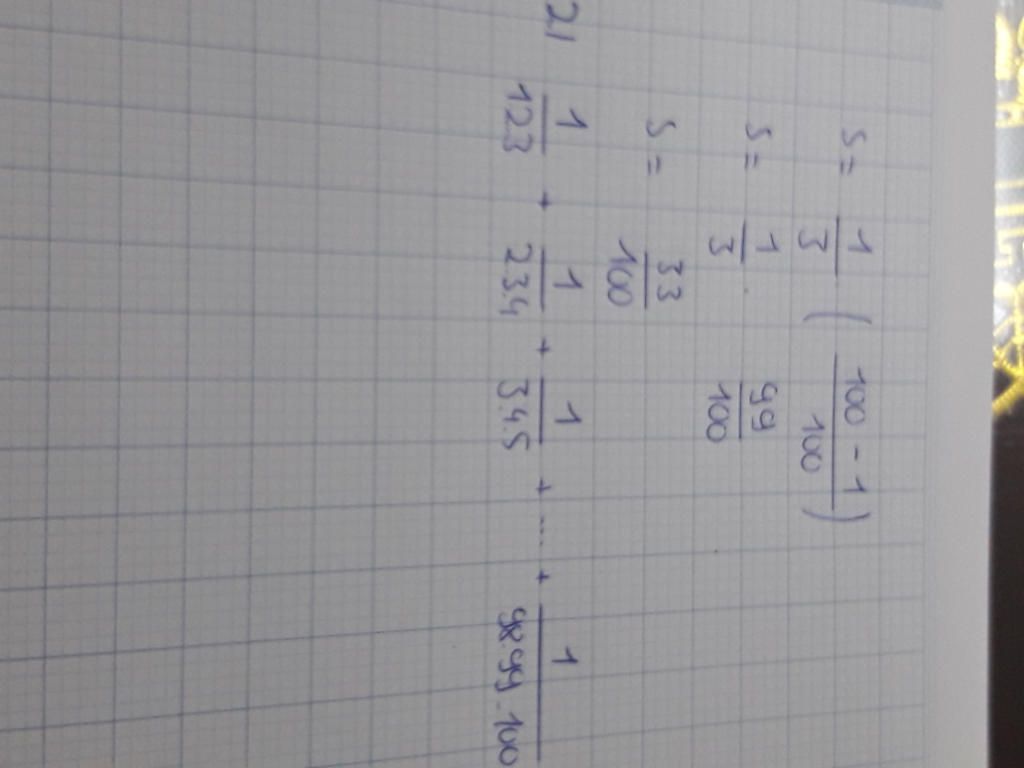 S = 1/3 ( 100 - 1 / 100 )
S = 1/3 . 99/100
S = 33/100
2) 1/1.2.3 + 1/2.3.4 + 1/3.4.5 + .... + 1/98.99.100